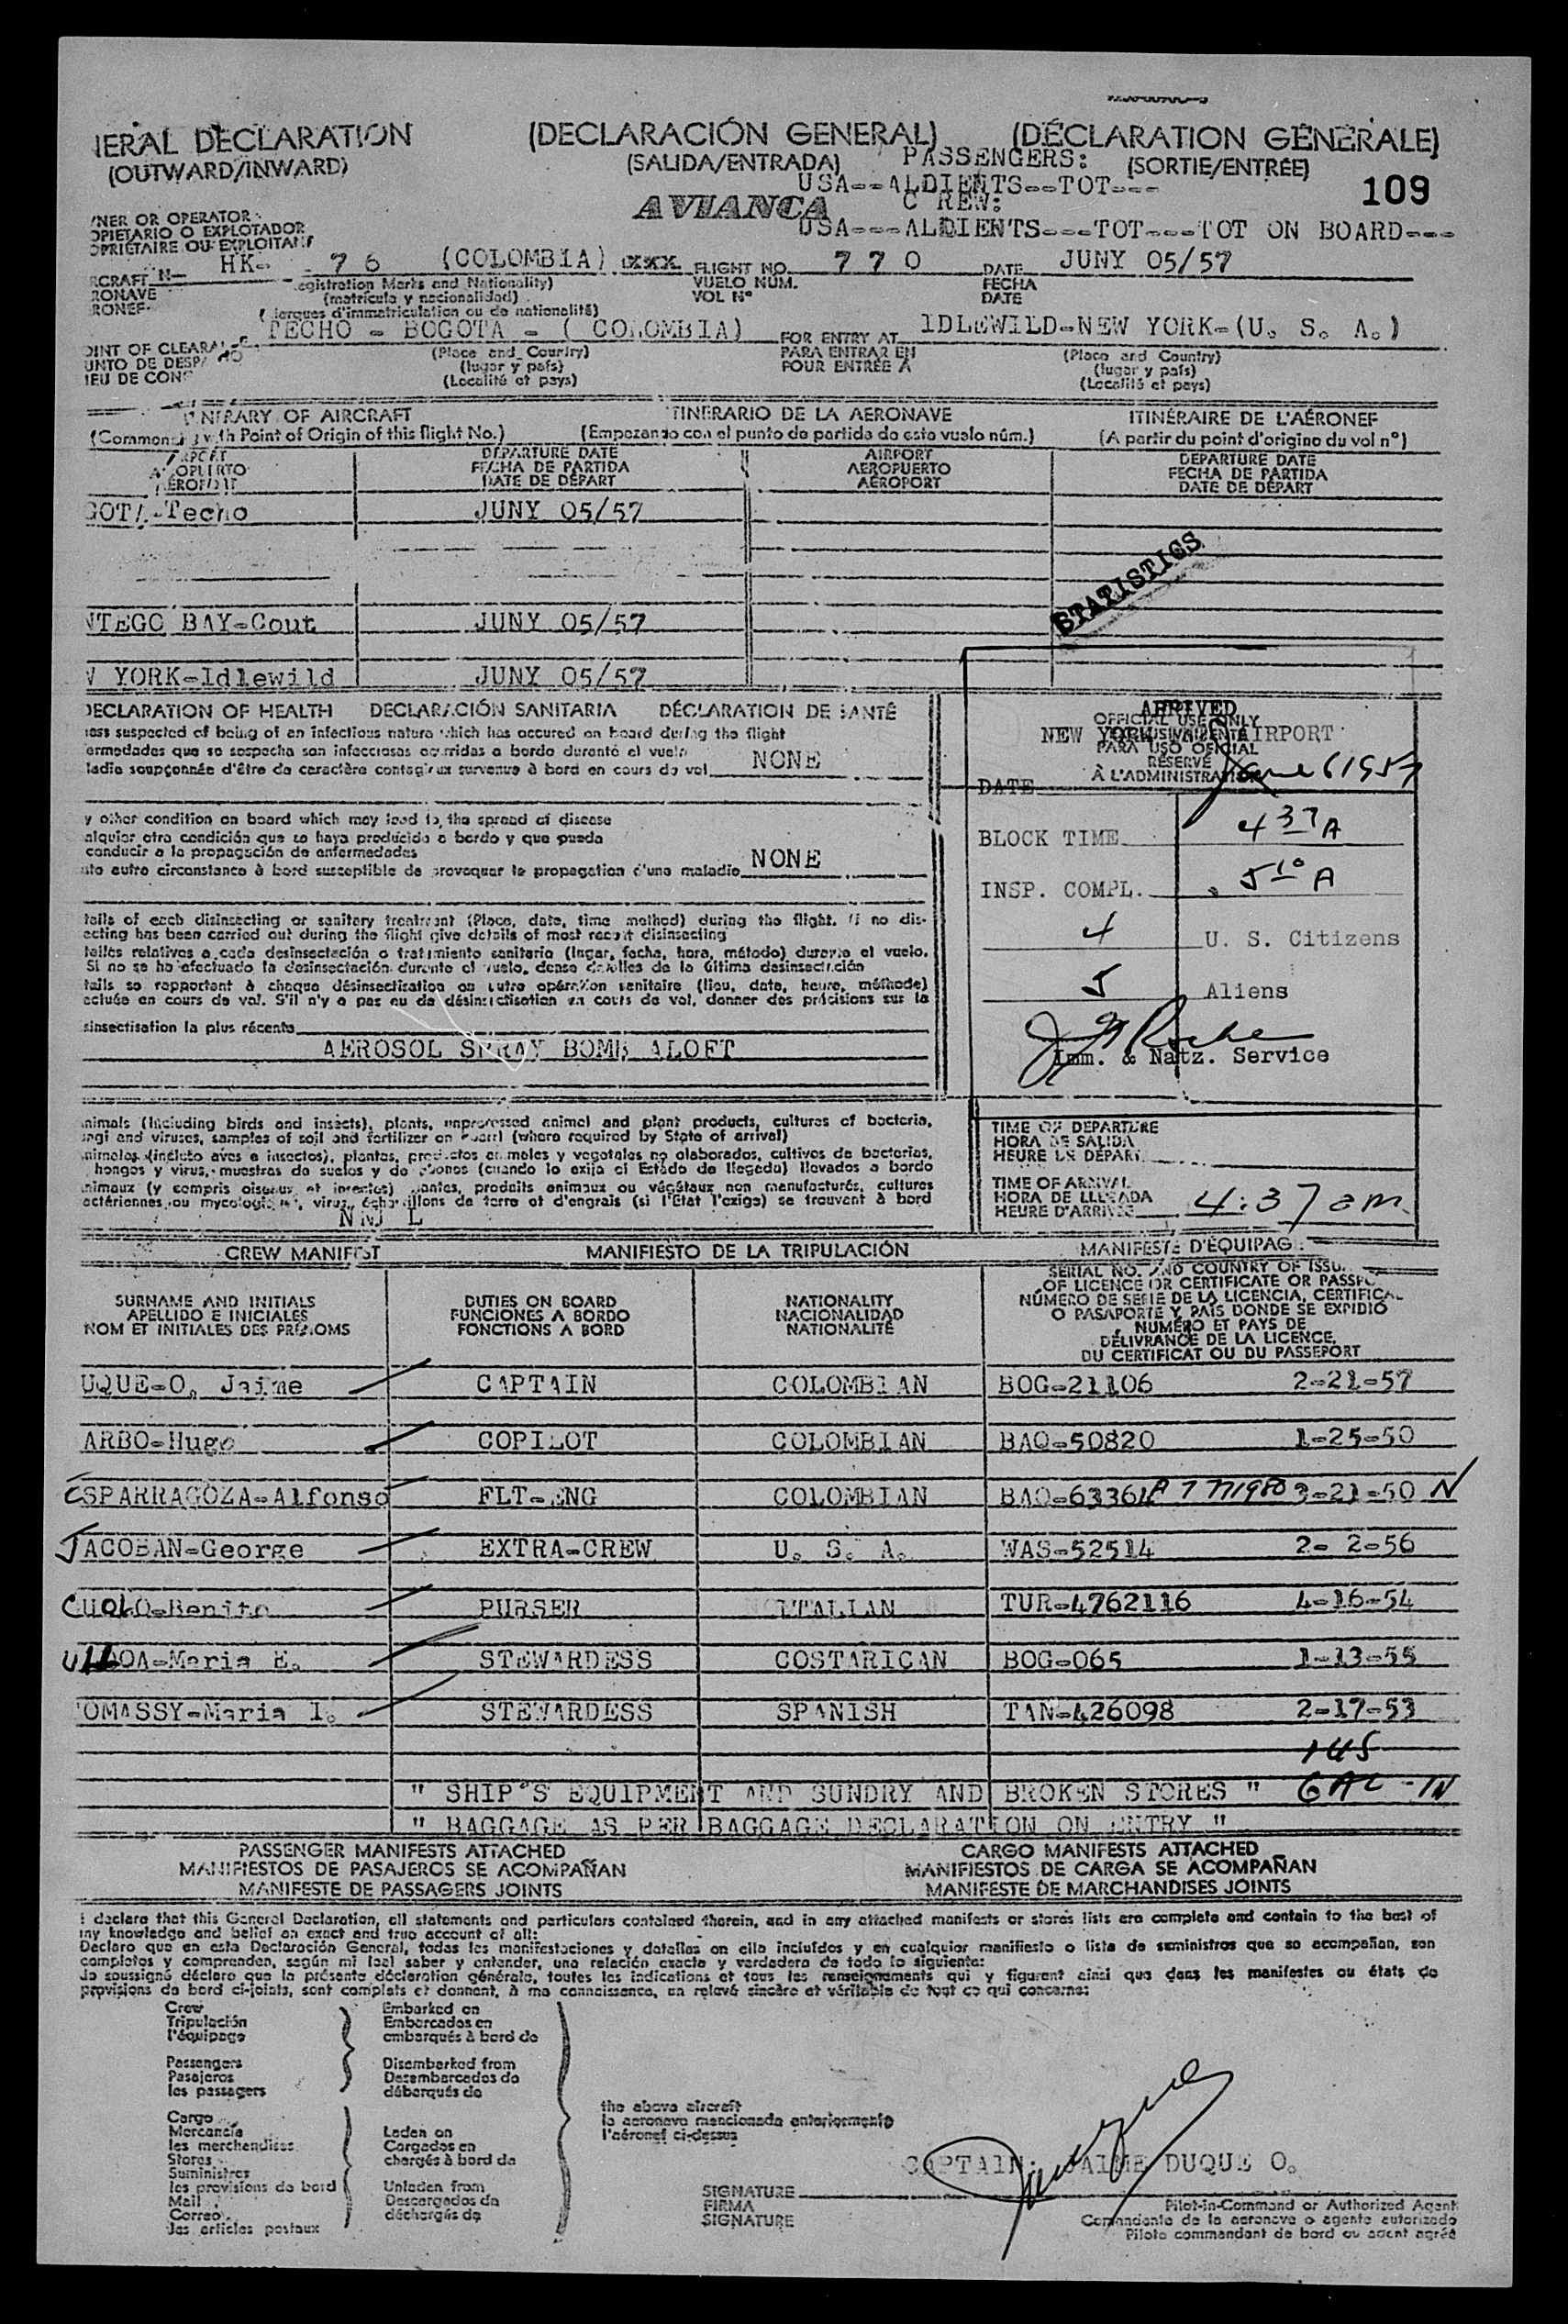 IERAL DECLARATION (DECLARACIÓN GENERAL) (DÉCLARATION GÉNÉRALE)
(OUTWARD/INWARD) (SALIDA/ENTRADA) PASSENGERS: (SORTIE/ENTRÉE)
USA--ALDIENTS--TOT--- 109
AVIANCA C REW:
USA---ALDIENTS---TOT---TOT ON BOARD---
NER OR OPERATOR
OPIETARIO O EXPLOTADOR
OPRIÉTAIRE OU EXPLOITANT
RCRAFT N- HK- 76 (COLOMBIA) FLIGHT NO. 770 DATE JUNY 05/57
RONAVE egistration Marks and Nationality) VUELO NÚM. FECHA
RONEF (matrícula y nacionalidad) VOL N° DATE
arques d'immatriculation ou de nationalité)
TECHO - BOGOTA - ( COLOMBIA) FOR ENTRY AT IDLEWILD-NEW YORK-(U. S. A.)
OINT OF CLEARA (Place and Country) PARA ENTRAR EN (Place and Country)
UNTO DE DESPA (lugar y país) POUR ENTRÉE A (lugar y país)
IEU DE CONG (Localité et pays) (Localité et pays)
INERARY OF AIRCRAFT ITINERARIO DE LA AERONAVE ITINÉRAIRE DE L'AÉRONEF
(Commencing with Point of Origin of this flight No.) (Empezando con el punto de partida de este vuelo núm.) (A partir du point d'origine du vol n°)
DEPARTURE DATE AIRPORT DEPARTURE DATE
FECHA DE PARTIDA AEROPUERTO FECHA DE PARTIDA
DATE DE DÉPART AÉROPORT DATE DE DÉPART
GOTA-Techo JUNY 05/57
STATISTICS
NTEGO BAY-Cout JUNY 05/57
W YORK-Idlewild JUNY 05/57
DECLARATION OF HEALTH DECLARACIÓN SANITARIA DÉCLARATION DE SANTÉ
ness suspected of being of an infectious nature which has occured on board during the flight
ermedades que se sospecha son infecciosas ocurridas a bordo durante el vuelo
ladie soupçonnée d'être de caractère contagieux survenue à bord en cours de vol NONE
ARRIVED
OFFICIAL USE ONLY
NEW YORK AIRPORT
PARA USO OFICIAL
RÉSERVÉ
À L'ADMINISTRATION
DATE June 6 1957
y other condition on board which may lead to the spread of disease
alquier otra condición que se haya producido a bordo y que pueda
conducir a la propagación de enfermedades
ute autre circonstance à bord susceptible de provoquer la propagation d'une maladie NONE
BLOCK TIME 4 37 A
INSP. COMPL. 5 10 A
4 U. S. Citizens
5 Aliens
Imm. & Natz. Service
tails of each disinsecting or sanitary treatment (Place, date, time method) during the flight. If no dis-
ecting has been carried out during the flight give details of most recent disinsecting
talles relativos a cada desinsectación o tratamiento sanitario (lugar, fecha, hora, método) durante el vuelo.
Si no se ha efectuado la desinsectación durante el vuelo, dense detalles de la última desinsectación
tails se rapportant à chaque désinsectisation ou autre opération sanitaire (lieu, date, heure, méthode)
ectuée en cours de vol. S'il n'y a pas eu de désinsectisation en cours de vol, donner des précisions sur la
sinsectisation la plus récente
AEROSOL SPRAY BOMB ALOFT
nimals (Including birds and insects), plants, unprocessed animal and plant products, cultures of bacteria,
ungi and viruses, samples of soil and fertilizer on board (where required by State of arrival)
nimales (incluto aves e insectos), plantas, productos animales y vegetales no elaborados, cultivos de bacterias,
hongos y virus, muestras de suelos y de abonos (cuando lo exija el Estado de llegada) llevados a bordo
nimaux (y compris oiseaux et insectes) plantes, produits animaux ou végétaux non manufacturés, cultures
actériennes ou mycologiques, virus, échantillons de terre et d'engrais (si l'Etat l'exige) se trouvant à bord
TIME OF DEPARTURE
HORA DE SALIDA
HEURE DE DÉPART
TIME OF ARRIVAL
HORA DE LLEGADA
HEURE D'ARRIVÉE 4:37 am.
CREW MANIFEST MANIFIESTO DE LA TRIPULACIÓN MANIFESTE D'ÉQUIPAGE
SURNAME AND INITIALS DUTIES ON BOARD NATIONALITY
APELLIDO E INICIALES FUNCIONES A BORDO NACIONALIDAD
NOM ET INITIALES DES PRÉNOMS FONCTIONS A BORD NATIONALITÉ
SERIAL NO. AND COUNTRY OF ISSU
OF LICENCE OR CERTIFICATE OR PASSPO
NÚMERO DE SERIE DE LA LICENCIA, CERTIFICA
O PASAPORTE Y PAÍS DONDE SE EXPIDIÓ
NUMÉRO ET PAYS DE
DÉLIVRANCE DE LA LICENCE,
DU CERTIFICAT OU DU PASSEPORT
UQUE-O. Jaime CAPTAIN COLOMBIAN BOG-21106 2-21-57
ARBO-Hugo COPILOT COLOMBIAN BAQ-50820 1-25-50
ESPARRAGOZA-Alfonso FLT-ENG COLOMBIAN BAQ-63361 P 7 771980 3-21-50 N
JACOBAN-George EXTRA-CREW U. S. A. WAS-52514 2- 2-56
CUOLO-Benito PURSER ITALIAN TUR-4762116 4-16-54
ULLOA-Maria E. STEWARDESS COSTARICAN BOG-065 1-13-55
OMASSY-Maria I. STEWARDESS SPANISH TAN-426098 2-17-53
145
" SHIP'S EQUIPMENT AND SUNDRY AND BROKEN STORES " GAL - IN
" BAGGAGE AS PER BAGGAGE DECLARATION ON ENTRY "
PASSENGER MANIFESTS ATTACHED CARGO MANIFESTS ATTACHED
MANIFIESTOS DE PASAJEROS SE ACOMPAÑAN MANIFIESTOS DE CARGA SE ACOMPAÑAN
MANIFESTE DE PASSAGERS JOINTS MANIFESTE DE MARCHANDISES JOINTS
I declare that this General Declaration, all statements and particulars contained therein, and in any attached manifests or stores lists are complete and contain to the best of
my knowledge and belief an exact and true account of all:
Declaro que en esta Declaración General, todas las manifestaciones y detalles en ella incluídos y en cualquier manifiesto o lista de suministros que se acompañan, son
completos y comprenden, según mi leal saber y entender, una relación exacta y verdadera de todo lo siguiente:
Je soussigné déclare que la présente déclaration générale, toutes les indications et tous les renseignements qui y figurent ainsi que dans les manifestes ou états de
provisions de bord ci-joints, sont complets et donnent, à ma connaissance, un relevé sincère et véritable de tout ce qui concerne:
Crew Embarked on
Tripulación Embarcados en
l'équipage embarqués à bord de
Passengers Disembarked from
Pasajeros Desembarcados de
les passagers débarqués de
the above aircraft
la aeronave mencionada anteriormente
l'aéronef ci-dessus
Cargo
Mercancía Laden on
les merchendises Cargados en
Stores chargés à bord de
Suministros
les provisions de bord Unladen from
Mail Descargados de
Correo déchargés de
les articles postaux
CAPTAIN: JAIME DUQUE O.
SIGNATURE
FIRMA
SIGNATURE
Pilot-in-Command or Authorized Agent
Comandante de la aeronave o agente autorizado
Pilote commandant de bord ou agent agréé